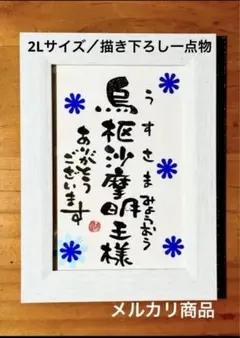 2Lサイズ／描き下ろし一点物
うすさまみょうおう
烏枢沙摩明王様
ありがとう
ございます
メルカリ商品